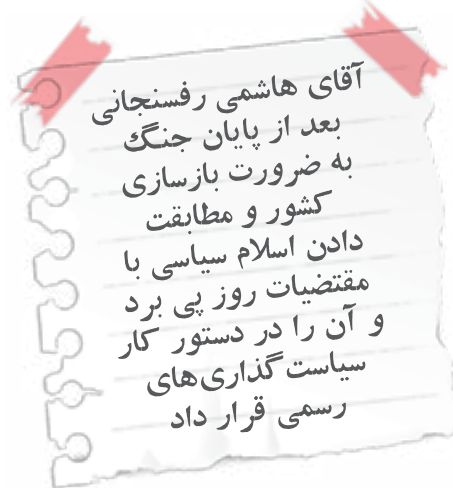 آقای هاشمی رفسنجانی
بعد از پایان جنگ
به ضرورت بازسازی
کشور و مطابقت
دادن اسلام سیاسی با
مقتضیات روز پی برد
و آن را در دستور کار
سیاست‌گذاری‌های
رسمی قرار داد